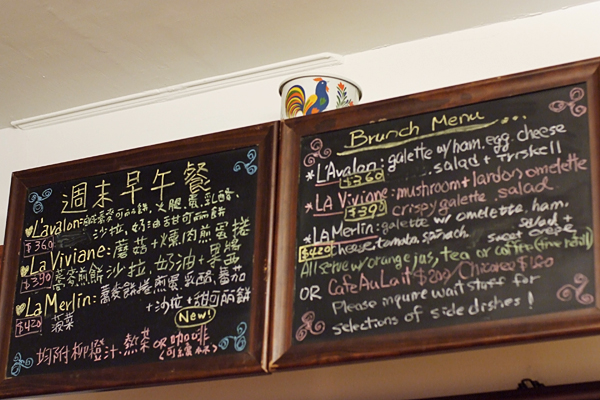 週末早午餐
L'avalon: 蕎麥可麗餅, 火腿, 蛋, 乳酪,
$360 沙拉, 奶油甜可麗餅
La Viviane: 蘑菇+燻肉煎蛋捲
$390 蕎麥煎餅 沙拉, 奶油+果醬
La Merlin: 蕎麥餅捲煎蛋乳酪, 蕃茄
$420 菠菜 +沙拉+甜可麗餅
New!
均附柳橙汁, 熱茶 or 咖啡
Brunch Menu...
*L'Avalon: galette w/ham, egg, cheese
$360 salad + Triskell
*LA Viviane: mushroom + lardon omelette
$390 crispy galette, salad
*LA Merlin: galette w/ omelette, ham,
$420 cheese, tomato, spinach, salad +
sweet crepe
All serve w/ orange jus, tea or coffee (free refill)
OR Cafe Au Lait
Please inquire wait stuff for
selections of side dishes!